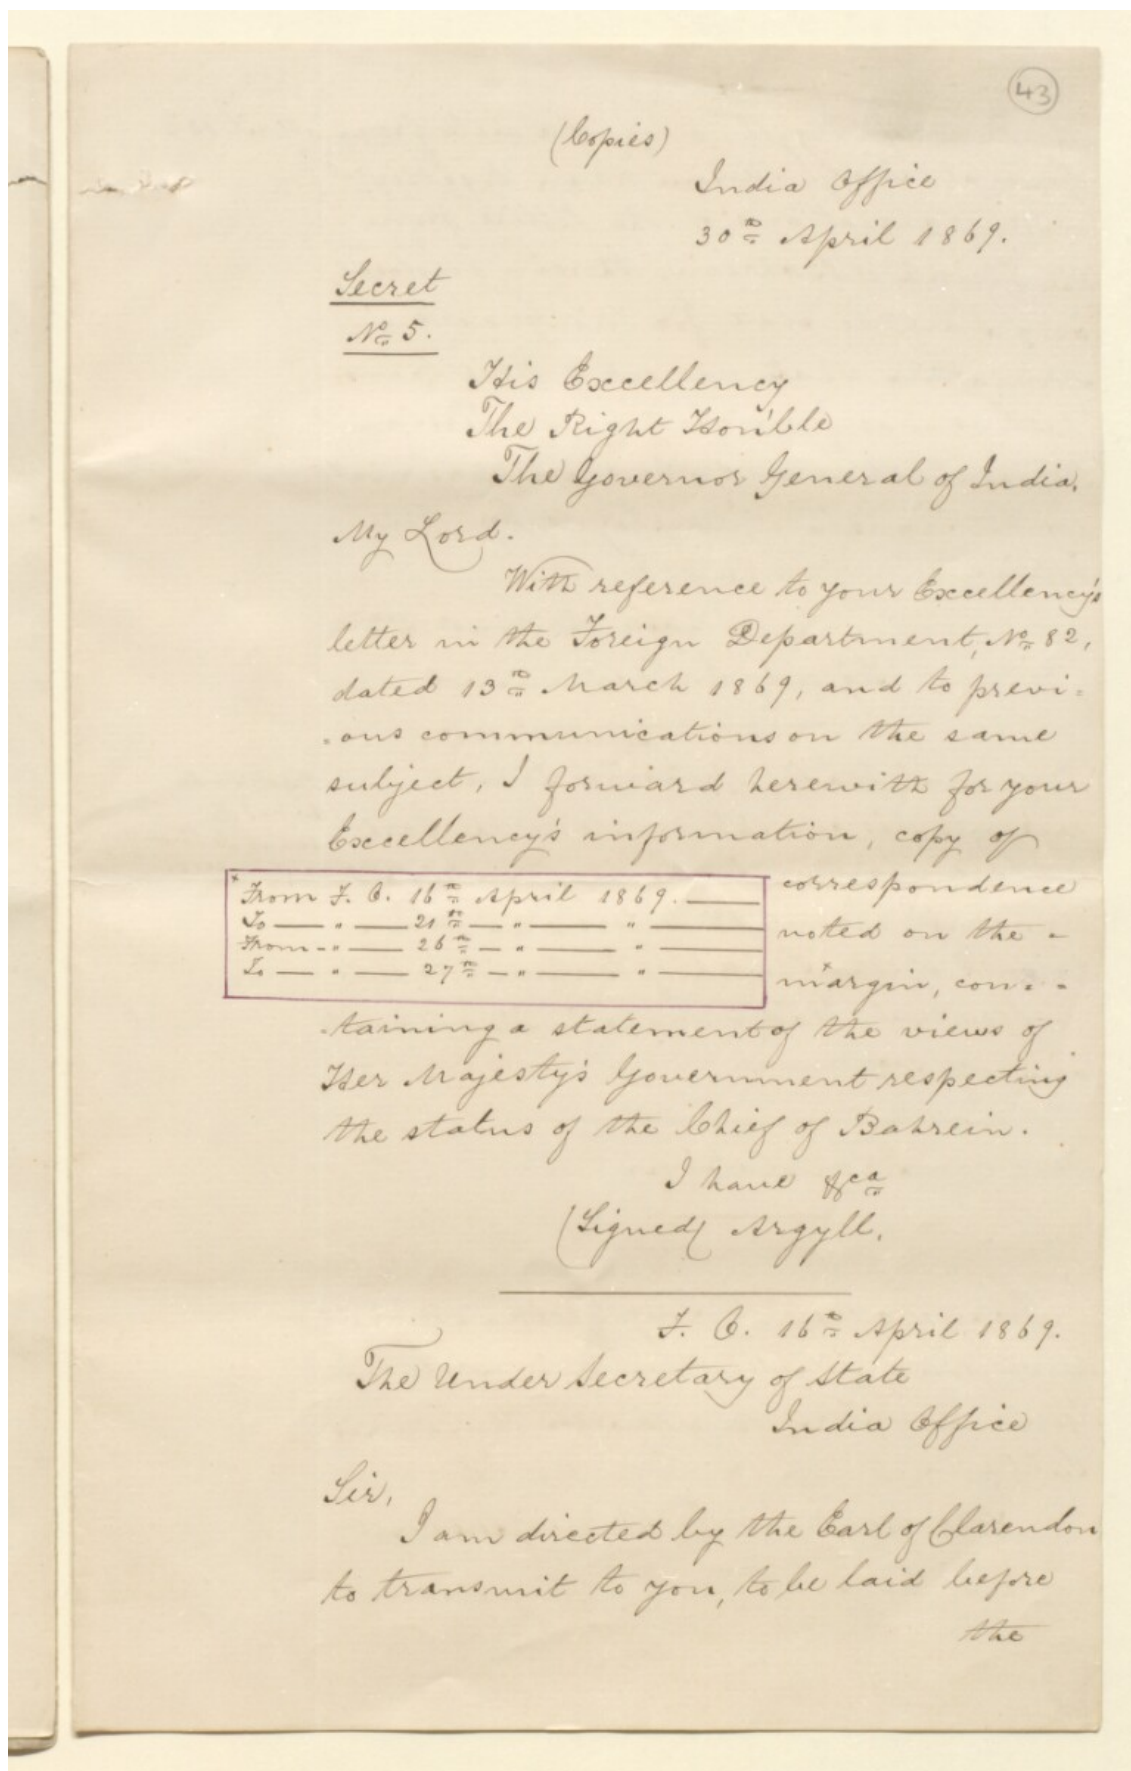 43
(Copies)
India Office
30th April 1869.
Secret
No 5.
His Excellency
The Right Hon'ble
The Governor General of India.
My Lord.
With reference to your Excellency's
letter in the Foreign Department, No 82,
dated 13th March 1869, and to previ-
-ous communications on the same
subject, I forward herewith for your
Excellency's information, copy of
correspondence
noted on the -
*margin, con- -
* From F. O. 16th April 1869. ——
To — " — 21st — " — " ——
From - " — 26th — " — " ——
To — " — 27th — " — " ——
-taining a statement of the views of
Her Majesty's Government respecting
the status of the Chief of Bahrein.
I have &ca
(Signed) Argyll.
F. O. 16th April 1869.
The Under Secretary of State
India Office
Sir,
I am directed by the Earl of Clarendon
to transmit to you, to be laid before
the